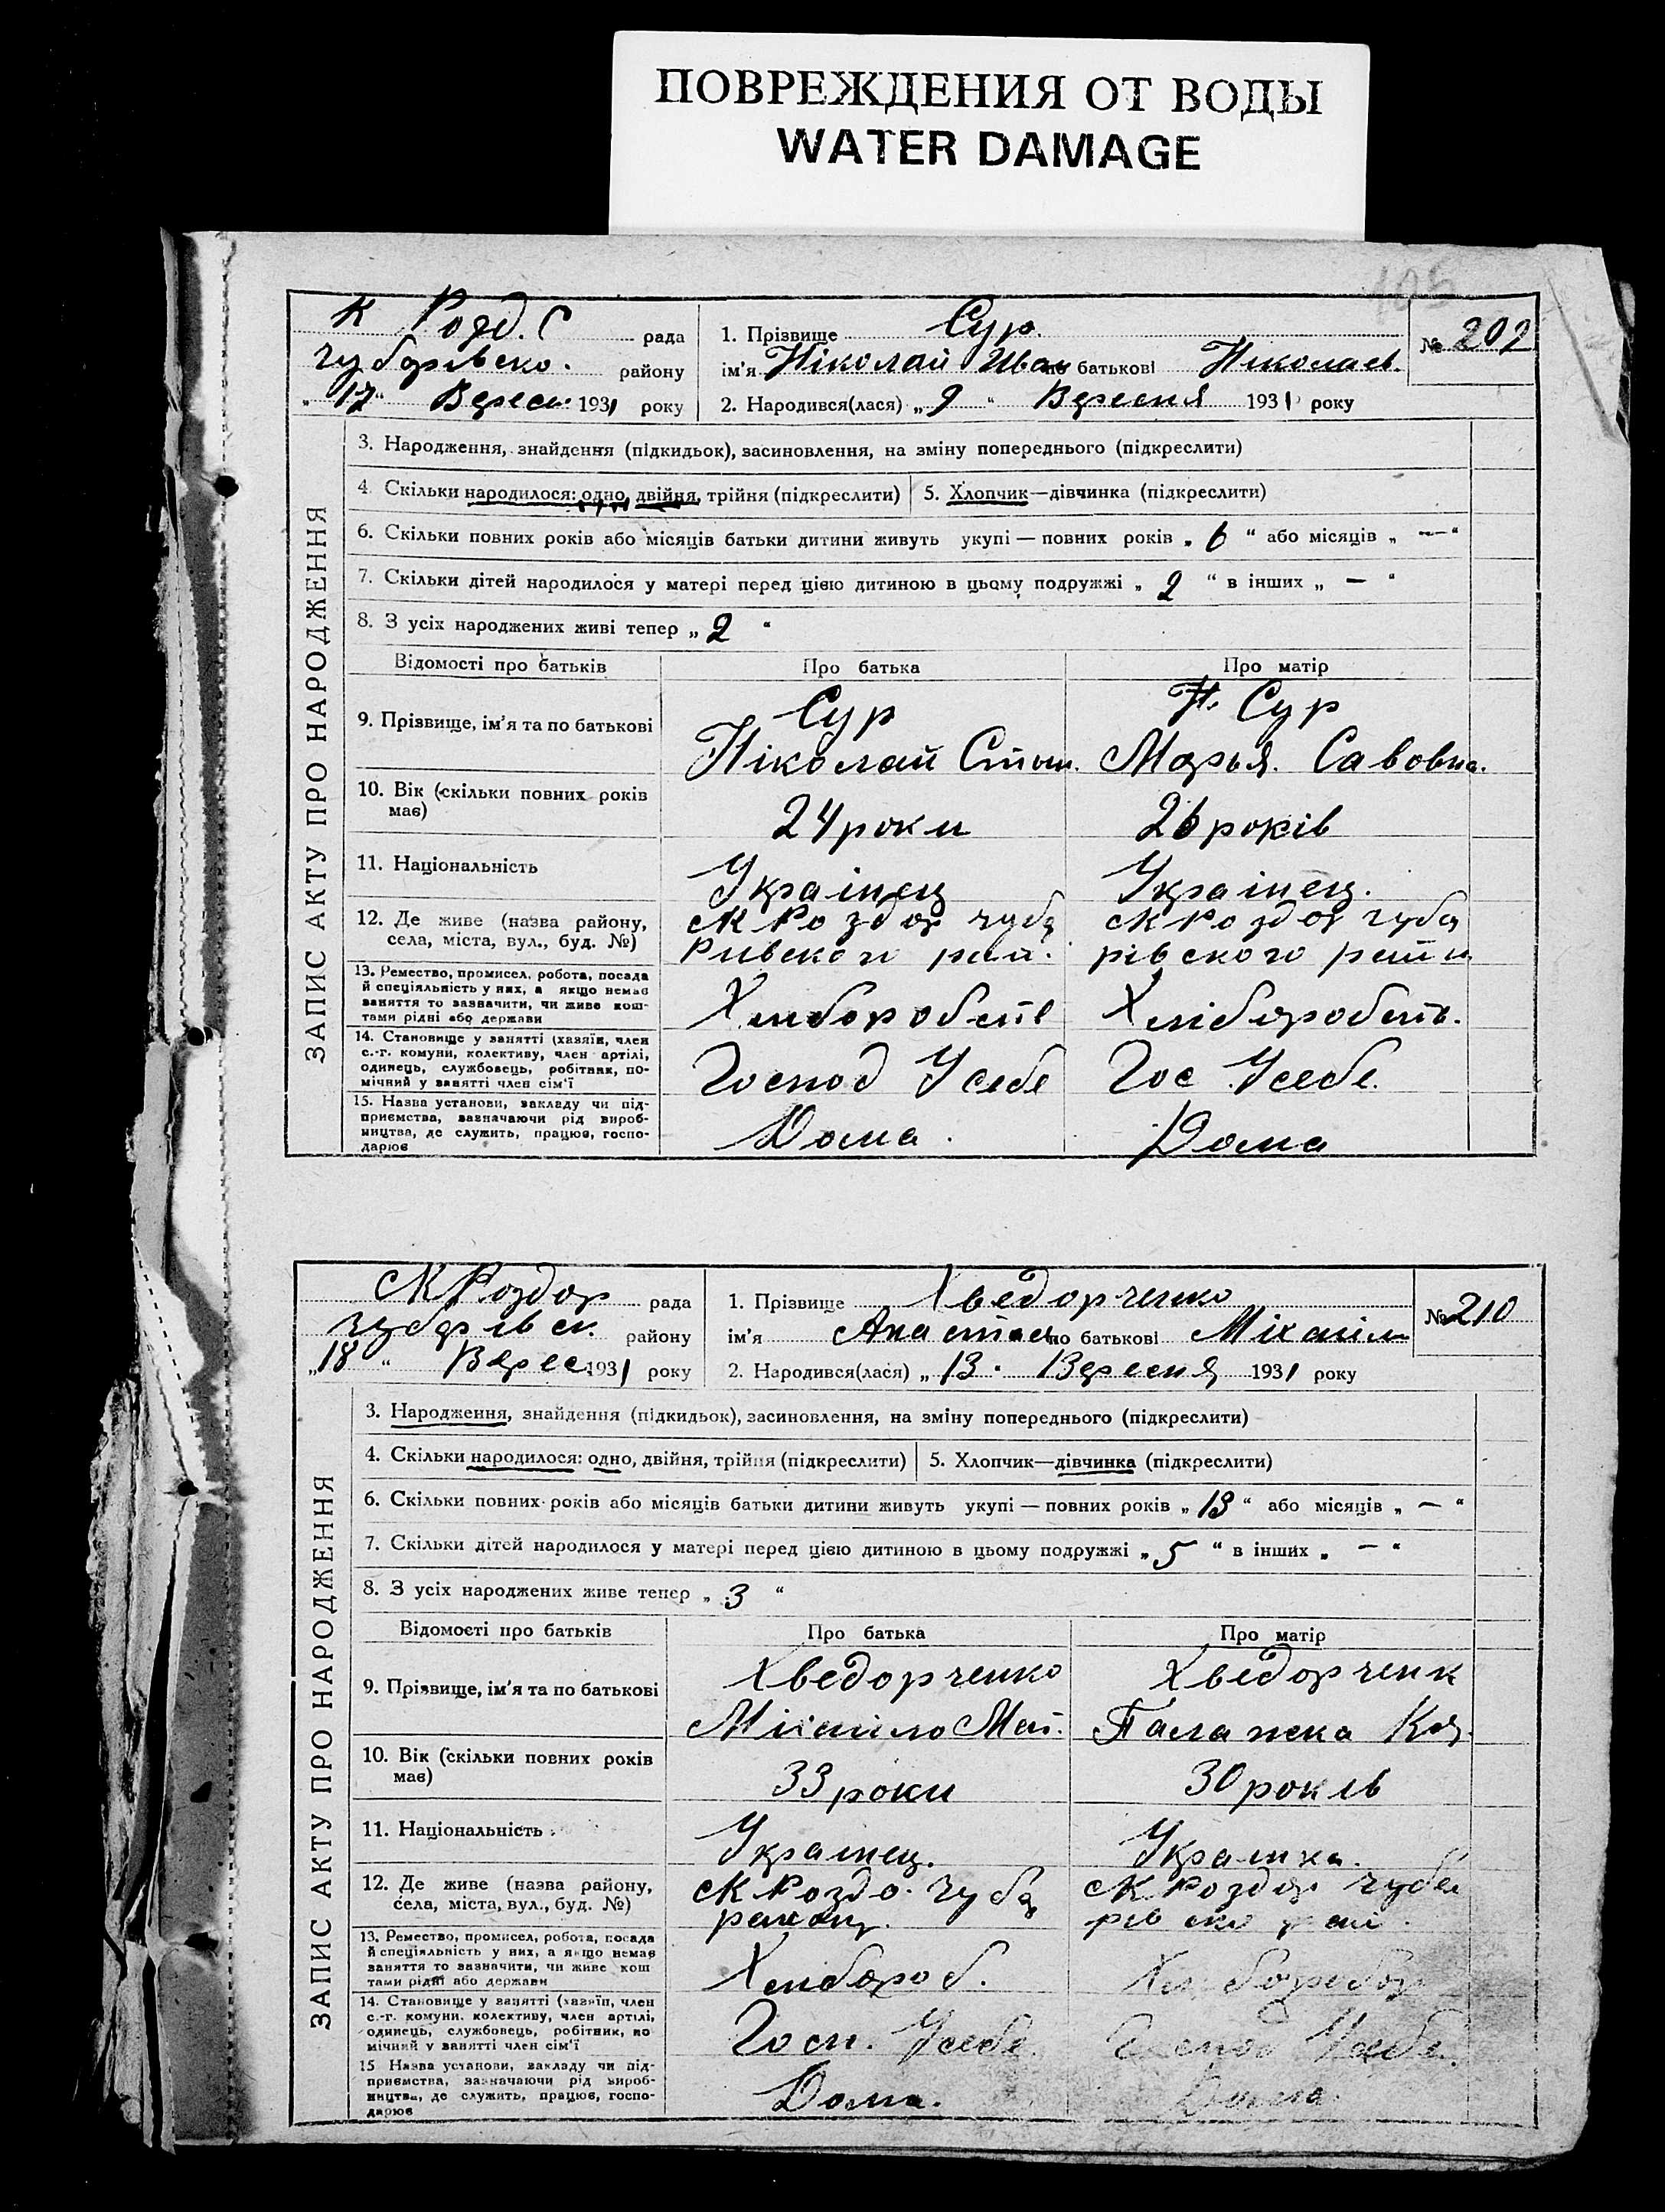 ПОВРЕЖДЕНИЯ ОТ ВОДЫ
WATER DAMAGE
105
К Розд. С рада
Чубарівсько. району
„17“ Вересн 1931 року
1. Прізвище Сур.
ім'я Ніколай Иван по батькові Николаев.
№ 202
2. Народився(лася) „9“ Вересня 1931 року
ЗАПИС АКТУ ПРО НАРОДЖЕННЯ
3. Народження, знайдення (підкидьок), засиновлення, на зміну попереднього (підкреслити)
4. Скільки народилося: одно, двійня, трійня (підкреслити) 5. Хлопчик—дівчинка (підкреслити)
6. Скільки повних років або місяців батьки дитини живуть укупі — повних років „6“ або місяців „—“
7. Скільки дітей народилося у матері перед цією дитиною в цьому подружжі „2“ в інших „—“
8. З усіх народжених живі тепер „2“
Відомості про батьків Про батька Про матір
9. Прізвище, ім'я та по батькові
Сур Н. Сур
Ніколай Степ. Марья. Савовна.
10. Вік (скільки повних років має)
24 роки 26 років
11. Національність
Українец Українец.
12. Де живе (назва району,
села, міста, вул., буд. №)
СК Роздор Чуба СК Роздор Чуба
ривского рай. рівского райи
13. Ремество, промисел, робота, посада
й спеціяльність у них, а якщо немає
заняття то зазначити, чи живе кош-
тами рідні або держави
Хлиборобств Хліборобств.
14. Становище у занятті (хазяїн, член
с.-г. комуни, колективу, член артілі,
одинець, службовець, робітник, по-
мічний у занятті член сім'ї
Господ У себе Гос У себе.
15. Назва установи, закладу чи під-
приємства, зазначаючи рід вироб-
ництва, де служить, працює, госпо-
дарює
Дома. Дома
СК Роздор рада
Чубарівск. району
„18“ Верес 1931 року
1. Прізвище Хведорченко
ім'я Анастась по батькові Міхайл
№ 210
2. Народився(лася) „13. Вересня 1931 року
ЗАПИС АКТУ ПРО НАРОДЖЕННЯ
3. Народження, знайдення (підкидьок), засиновлення, на зміну попереднього (підкреслити)
4. Скільки народилося: одно, двійня, трійня (підкреслити) 5. Хлопчик—дівчинка (підкреслити)
6. Скільки повних років або місяців батьки дитини живуть укупі — повних років „13“ або місяців „—“
7. Скільки дітей народилося у матері перед цією дитиною в цьому подружжі „5“ в інших „—“
8. З усіх народжених живе тепер „3“
Відомості про батьків Про батька Про матір
9. Прізвище, ім'я та по батькові
Хведорченко Хведорченк
Міхайло Мат. Палажка
10. Вік (скільки повних років має)
33 роки 30 років
11. Національність
Украинец. Украинка.
12. Де живе (назва району,
села, міста, вул., буд. №)
СК Роздо. Чуба СК Роздор Чуба
району. рівско рай.
13. Ремество, промисел, робота, посада
й спеціяльність у них, а якщо немає
заняття то зазначити, чи живе кош
тами рідні або держави
Хлибороб.
14. Становище у занятті (хазяїн, член
с.-г. комуни, колективу, член артілі,
одинець, службовець, робітник, по
мічний у занятті член сім'ї
Госп. У себе. Господ У себе.
15 Назва установи, закладу чи під-
приємства, зазначаючи рід вироб-
ництва, де служить, працює, госпо-
дарює
Дома. Дома.